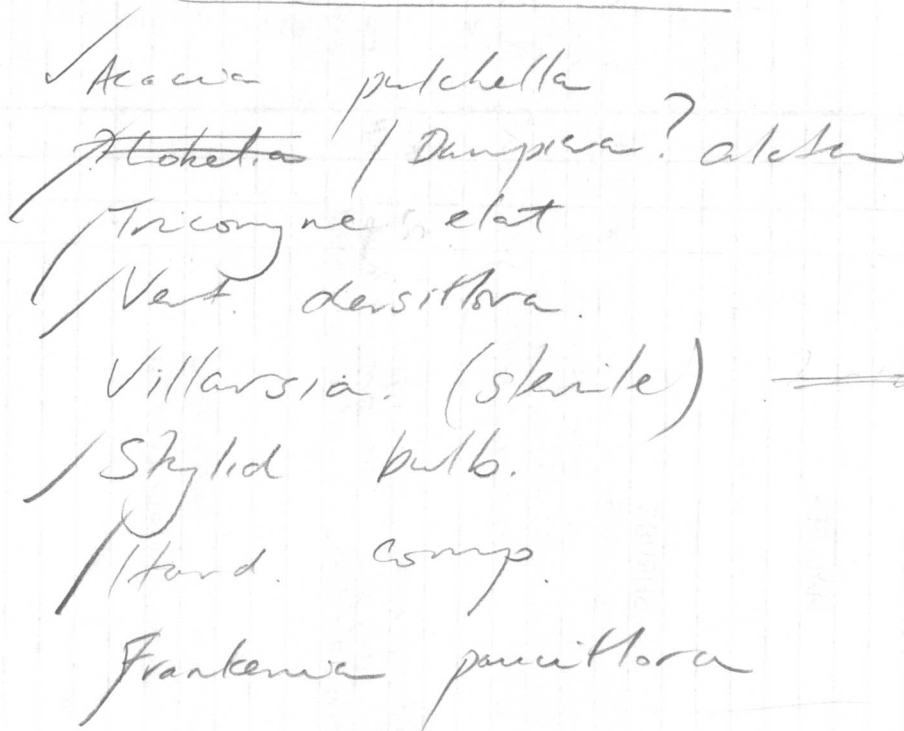 ✓ Acacia pulchella
/ ~~Lobelia~~ / Dampiera? alata
/ Tricoryne elat
/ Vert. densiflora.
Villarsia. (sterile)
/ Stylid bulb.
/ Hard. comp.
Frankenia pauciflora